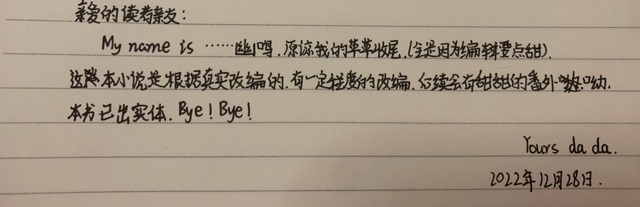 亲爱的读者亲友：
My name is ……幽鸣，原谅我的草草收尾，(全是因为编辑要点甜)．
这本小说是根据真实改编的，有一定程度的改编，后续会有甜甜的番外呦．
本书已出实体．Bye！Bye！
Yours da da．
2022年12月28日．